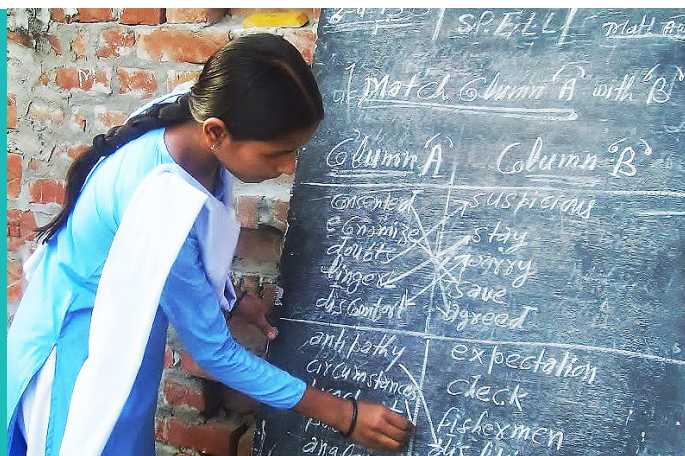 SPELL
Match Column "A" with "B"
Column "A" Column "B"
consented suspicious
economise stay
doubts worry
linger save
discomfort agread
antipathy expectation
circumstances check
fishermen